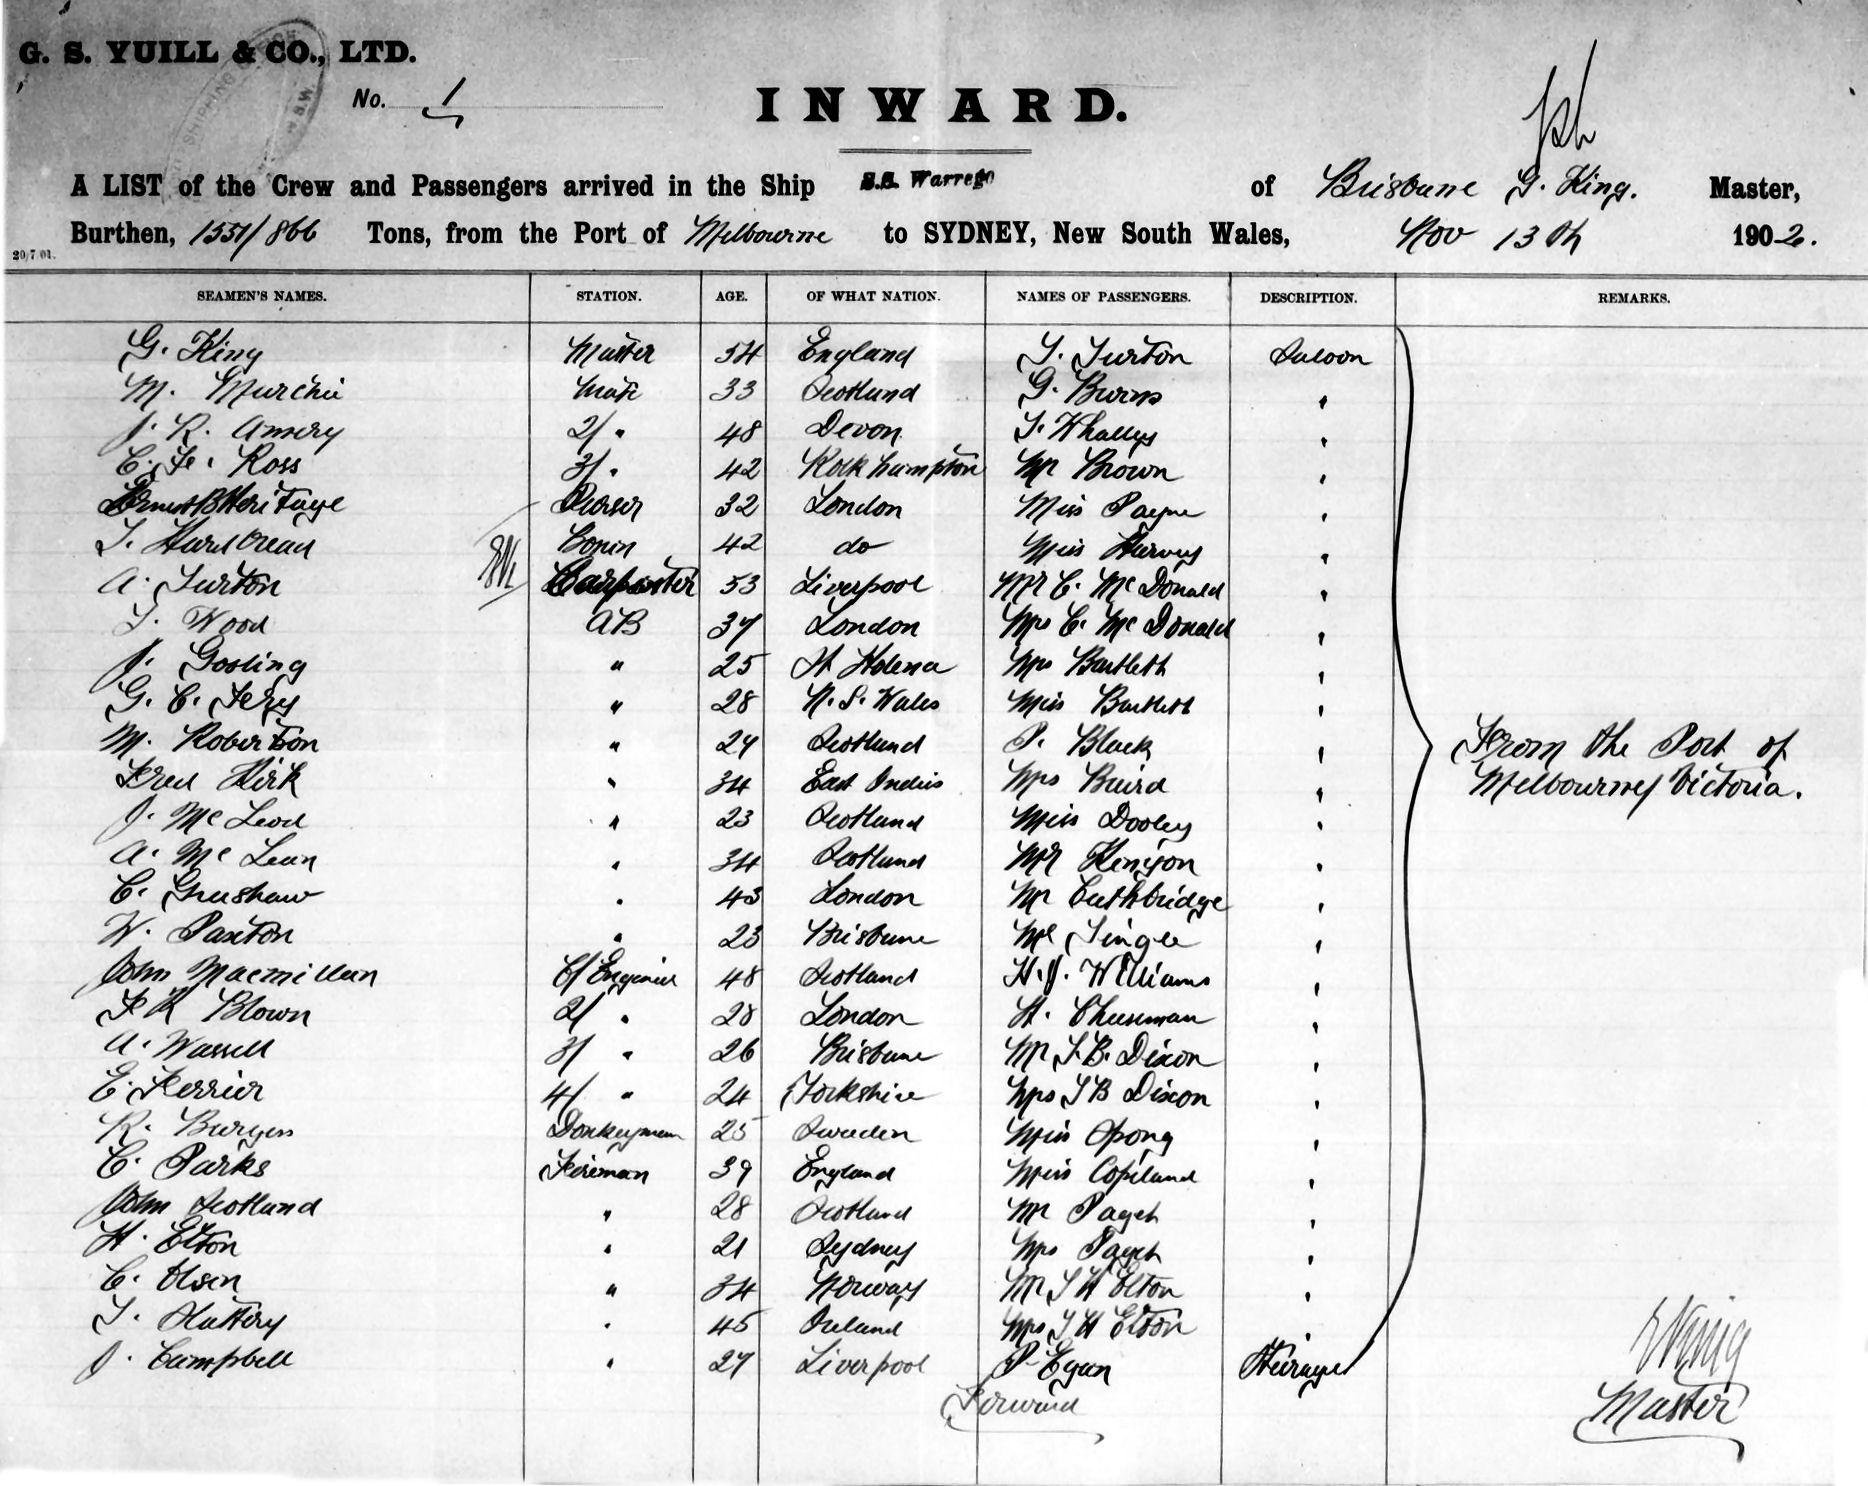 G. S. YUILL & CO., LTD.
No. 1
INWARD.
A LIST of the Crew and Passengers arrived in the Ship S.S. Warrego of Brisbane G. King. Master,
Burthen, 1551/866 Tons, from the Port of Melbourne to SYDNEY, New South Wales, Nov 13th 1902.
20/7/01.
SEAMEN'S NAMES. STATION. AGE. OF WHAT NATION. NAMES OF PASSENGERS. DESCRIPTION. REMARKS.
G. King Master 54 England T. Turton Saloon
M. Murchie Mate 33 Scotland G. Burns "
J. R. Amery 2/ " 48 Devon T. Whalleys "
C. Fe. Ross 3/ " 42 Rockhampton Mr Brown "
Ernest B Heritage Purser 32 London Miss Payne "
T. Hardbread 42 do Miss Harvey "
A. Turton Carpenter 53 Liverpool Mr C. McDonald "
T. Wood AB 37 London Mrs C. McDonald "
J. Gosling " 25 St Helena Mrs Bartlett "
G. C. " 28 N. S. Wales Miss Bartlett "
M. Robertson " 27 Scotland P. Black "
Fred Kirk " 34 East Indies Mrs Baird "
J. McLeod " 23 Scotland Miss Dooley "
A. McLean " 34 Scotland Mr Kenyon "
C. Greshaw " 43 London Mr Cuthbridge "
W. Paxton " 23 Brisbane Mr Tingle "
John Macmillan C/ Engineer 48 Scotland H. J. Williams "
F R Blown 2/ " 28 London H. Cheesman "
A. Wassell 3/ " 26 Brisbane Mr T. B. Dixon "
E. Ferrier 4/ " 24 Yorkshire Mrs T B Dixon "
R. Burgess Donkeyman 25 Sweden Miss Spong "
C. Parks Fireman 39 England Miss Copeland "
John Scotland " 28 Scotland Mr Paget "
H. Elton " 21 Sydney Mrs Paget "
C. Olsen " 34 Norway Mr T H Elton "
T. Slattery " 45 Ireland Mrs T H Elton "
J. Campbell " 27 Liverpool P Egan Steerage
Forward
From the Port of
Melbourne Victoria.
G King
Master